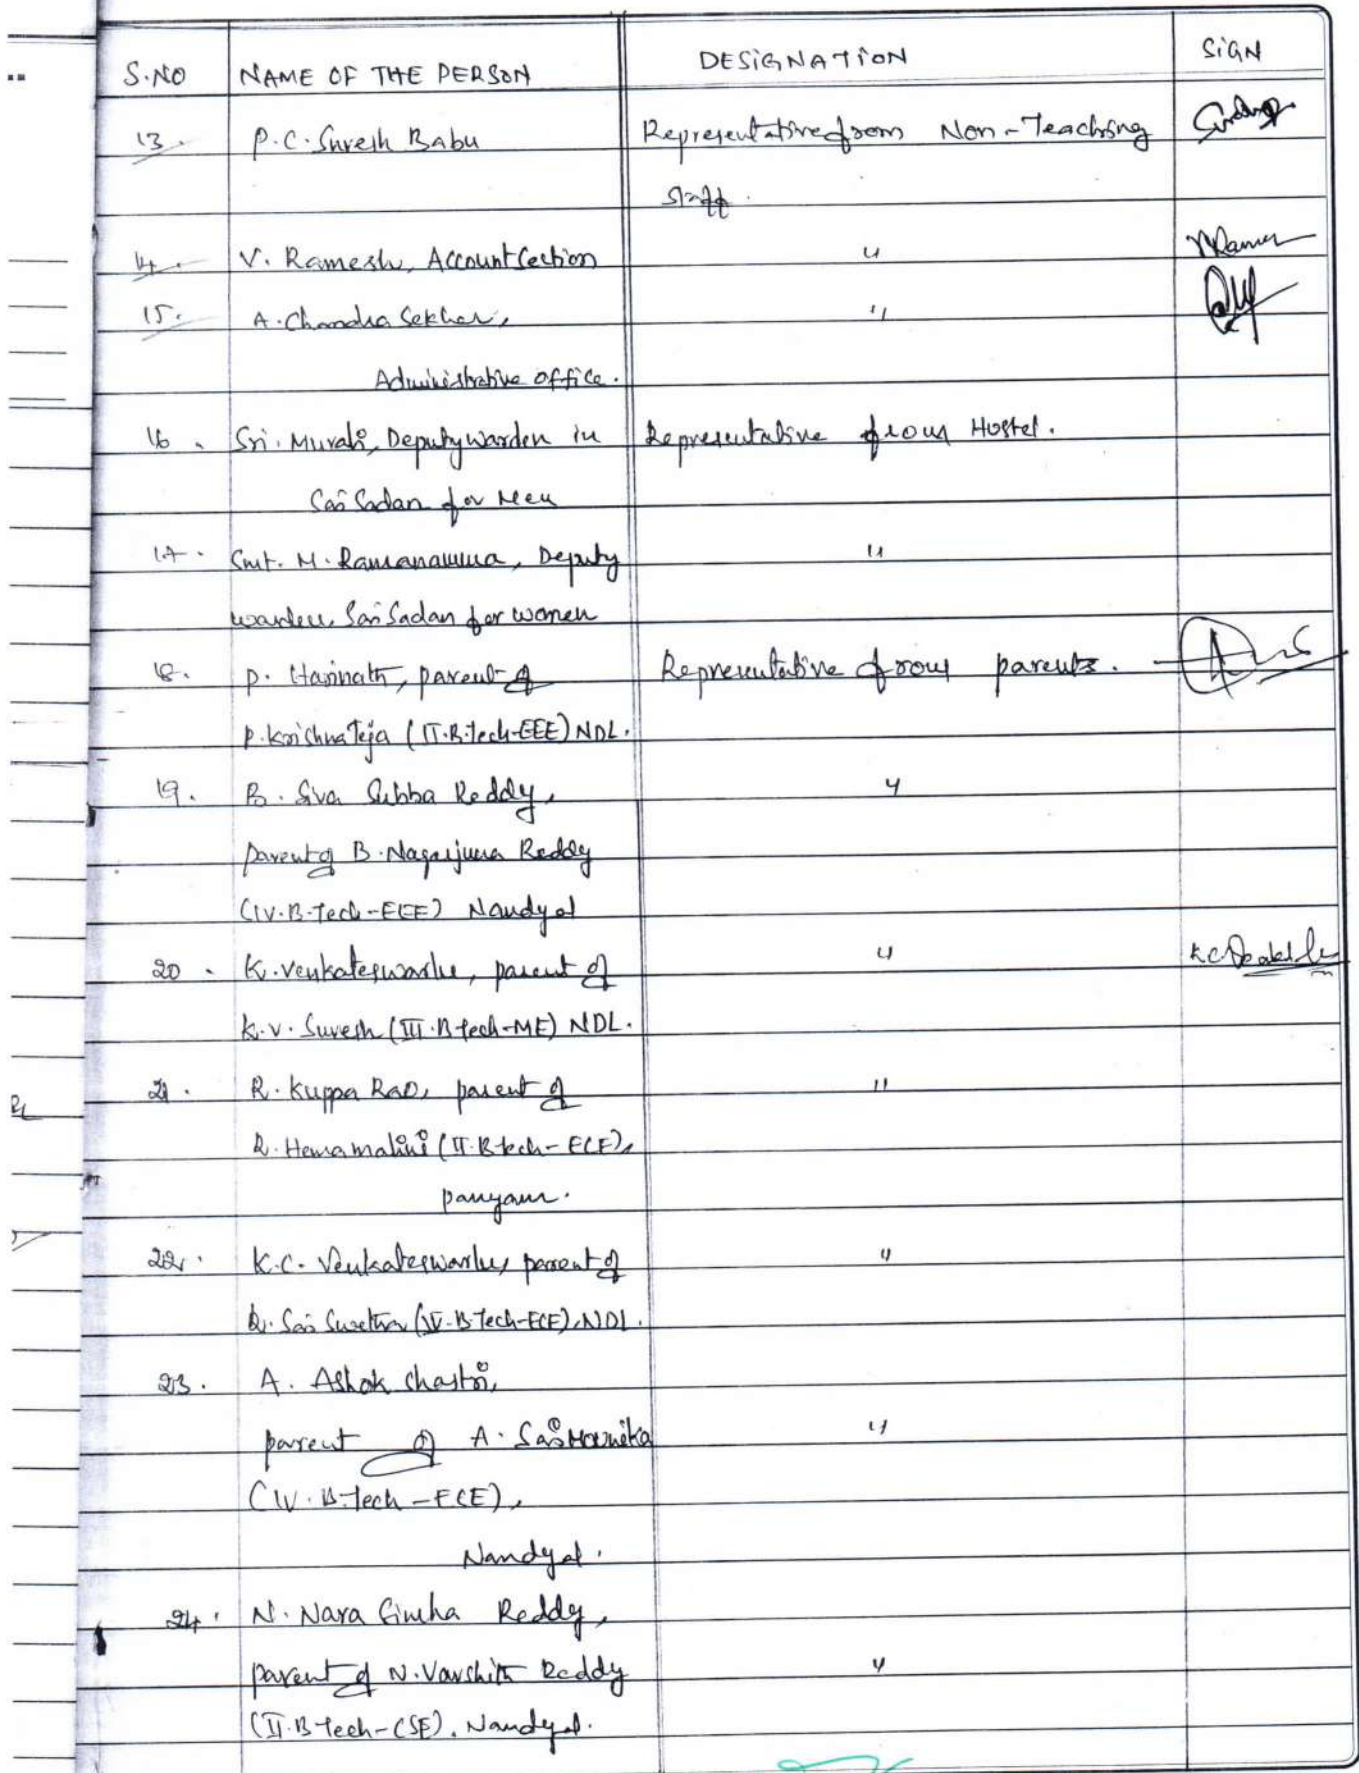 S.NO NAME OF THE PERSON DESIGNATION SIGN
13. P.C. Suresh Babu Representative from Non-Teaching
Staff.
14. V. Ramesh, Account Section "
15. A. Chandra Sekhar, "
Administrative office.
16. Sri. Murali, Deputy warden in Representative from Hostel.
Sai Sadan for Men
17. Smt. M. Ramanamma, Deputy "
warden, Sai Sadan for women
18. P. Harinath, parent of Representative from parents.
P. Krishna Teja (II.B.Tech-EEE) NDL.
19. B. Siva Subba Reddy, "
parent of B. Nagarjuna Reddy
(IV.B.Tech-ECE) Nandyal
20. K. Venkateswarlu, parent of "
K.V. Suresh (III.B.tech-ME) NDL.
21. R. Kuppa Rao, parent of "
R. Hemamalini (II.B.tech-ECE),
panyam.
22. K.C. Venkateswarlu, parent of "
K. Sai (IV.B.Tech-ECE), NDL.
23. A. Ashok Shastri,
parent of A. Sai Mounika "
(IV.B.Tech-ECE),
Nandyal.
24. N. Nara Simha Reddy,
parent of N. Varshith Reddy "
(II.B.Tech-CSE). Nandyal.